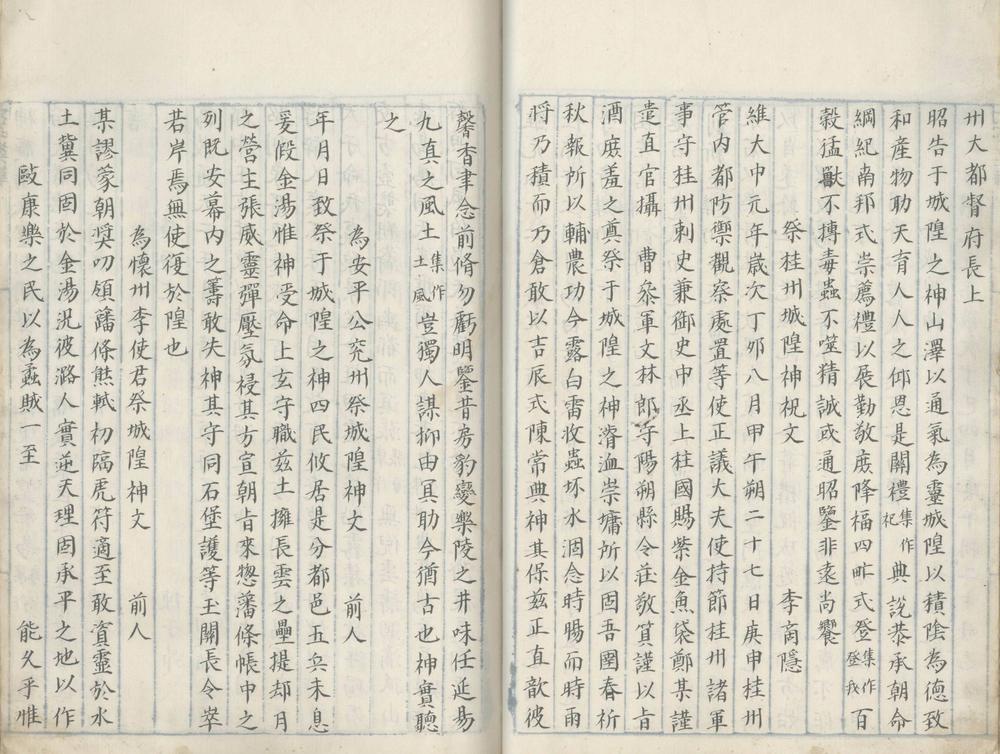 州大都督府長上
昭告于城隍之神山澤以通氣為靈城隍以積陰為德致
和產物助天育人人之仰恩是關禮集作祀典說恭承朝命
綱紀南邦式崇薦禮以展勤敬庶降福四甿式登集作登我百
穀猛獸不搏毒蟲不噬精誠或通昭鑒非遠尚饗
祭桂州城隍神祝文 李商隱
維大中元年歲次丁夘八月甲午朔二十七日庚申桂州
管內都防禦觀察處置等使正議大夫使持節桂州諸軍
事守桂州刺史兼御史中丞上柱國賜紫金魚袋鄭某謹
遣直官攝 曹叅軍文林郎守陽朔縣令莊敬質謹以旨
酒庶羞之奠祭于城隍之神濬洫崇墉所以固吾圉春祈
秋報所以輔農功今露白雷收蟲坏水涸念時暘而時雨
將乃積而乃倉敢以吉辰式陳常典神其保兹正直歆彼
馨香聿念前脩勿虧明鑒昔房豹變樂陵之井味任延易
九真之風土集作土風豈獨人謀抑由冥助今猶古也神實聽
之
為安平公兖州祭城隍神文 前人
年月日致祭于城隍之神四民攸居是分都邑五兵未息
爰假金湯惟神受命上玄守職兹土擁長雲之壘提却月
之營主張威靈彈壓氛祲其方宣朝旨來惣藩條帳中之
列既安幕內之籌敢失神其守同石堡護等玉關長令崒
若岸焉無使復於隍也
為懷州李使君祭城隍神文 前人
某謬蒙朝奨叨領藩條熊軾初臨虎符適至敢資靈於水
土冀同固於金湯況彼潞人實逆天理因承平之地以作
毆康樂之民以為蟊賊一至 能久乎惟